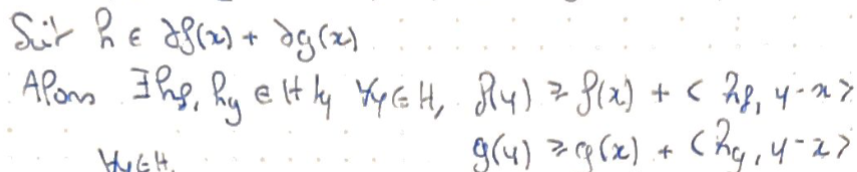 Soit h ∈ ∂f(x) + ∂g(x)
Alors ∃ h_f, h_g ∈ H tq ∀y ∈ H, f(y) ≥ f(x) + < h_f, y-x >
g(y) ≥ g(x) + < h_g, y-x >
∀y ∈ H,